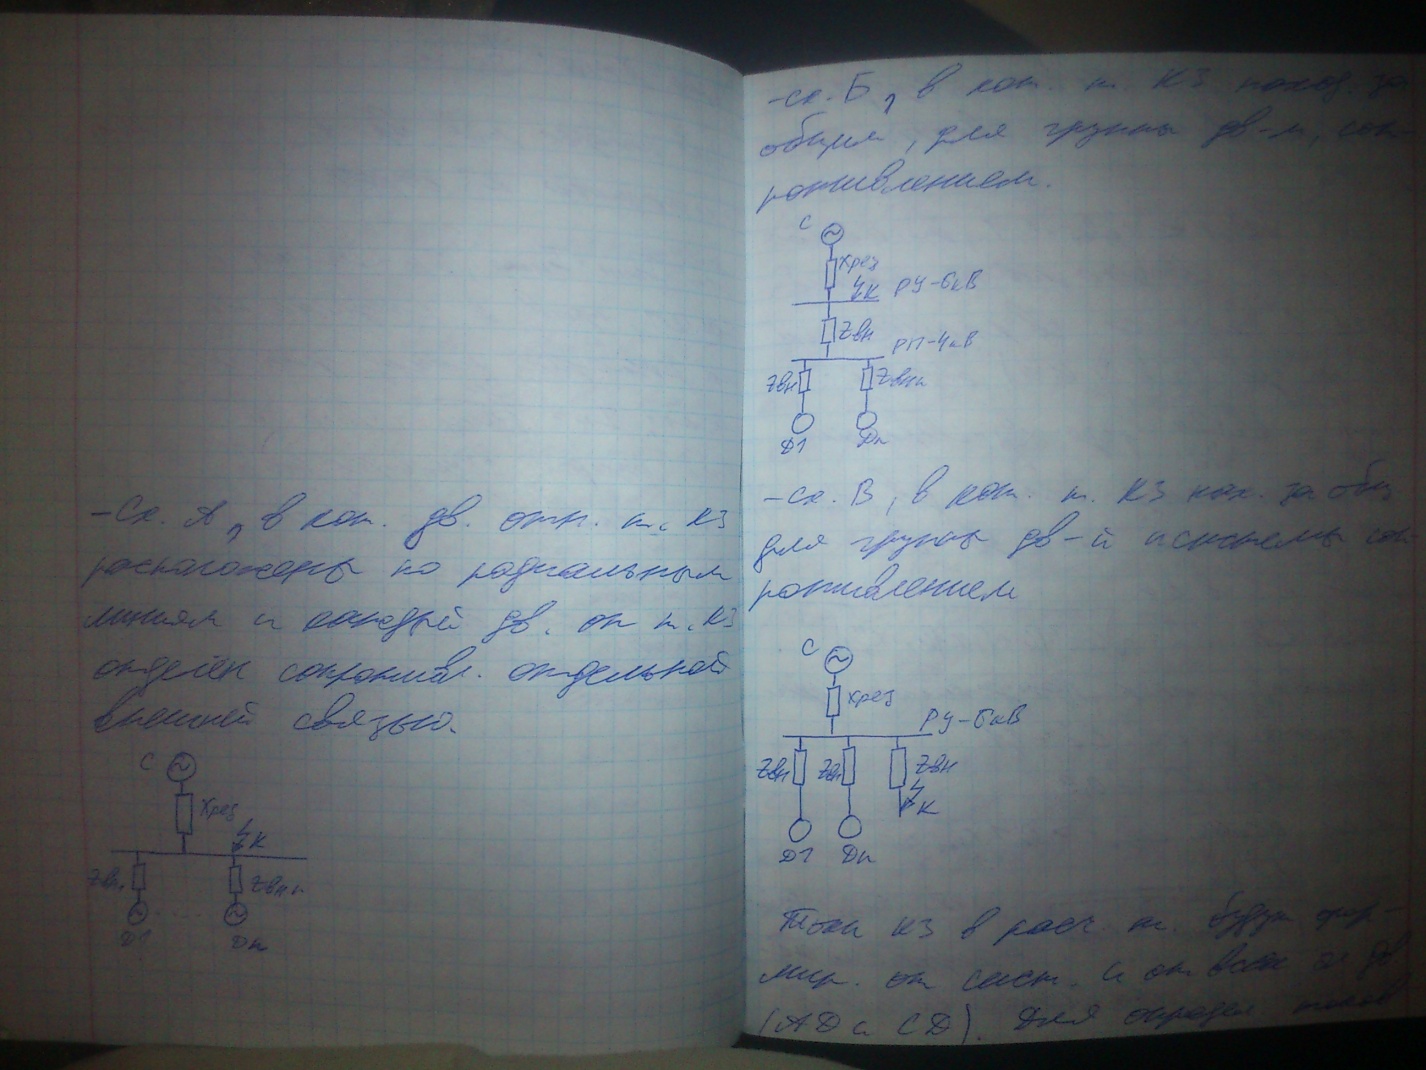 -Сх. А, в кот. дв. отн. т. КЗ
расположены по радиальным
линиям и каждый дв. от т. КЗ
отделён сопротивл. отдельной
внешней связью.
С
Хрез
К
Zвн
Zвн n
Д1
Дn
-сх. Б, в кот. т. КЗ наход. за
общим, для группы дв-й, соп-
ротивлением.
С
Хрез
К РУ-6кВ
Zвн
РП-4кВ
Zвн Zвнn
Д1 Дn
-сх. В, в кот. т. КЗ нах. за общ
для группы дв-й и системы соп
ротивлением
С
Хрез
РУ-6кВ
Zвн Zвн Zвн
К
Д1 Дn
Токи КЗ в расч. т. будут фор-
мир. от сист. и от всех дв
(АД и СД). Для определ токов